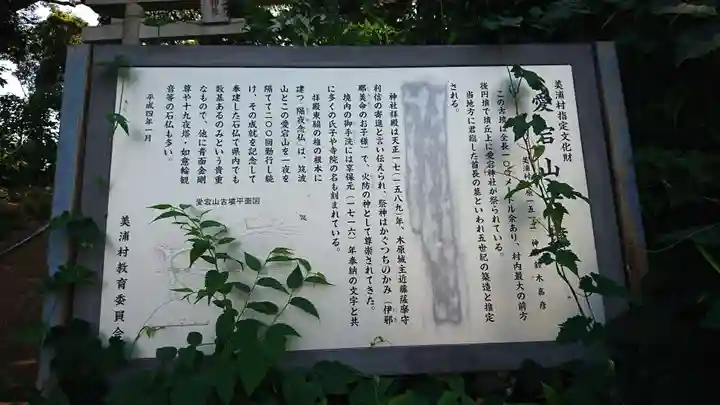 美浦村指定文化財
愛宕山
この古墳は全長一〇
メートル余あり、村内最大の前方
後円墳で墳丘上に愛宕神社が祭られている。
当地方に君臨した首長の墓といわれ五世紀の築造と推定
される。
神社拝殿は天正一七(一五八九)年、木原城主近藤薩摩守
利信の寄進と言い伝えられ、祭神はかぐつちのかみ(伊邪
那美命のお子様)で、火防の神として尊崇されてきた。
境内の御手洗には享保元(一七一六)年奉納の文字と共
に多くの氏子や寺院の名も刻まれている。
拝殿東縁の椎の根本に
建つ「隔夜念仏」は、筑波
山とこの愛宕山を一夜を
隔てて二〇〇回勤行し続
け、その成就を記念して
奉建した石仏で県内でも
数基あるのみという貴重
なもので、他に青面金剛
尊や十九夜塔・如意輪観
音等の石仏も多い。
愛宕山古墳平面図
平成四年一月
美浦村教育委員会